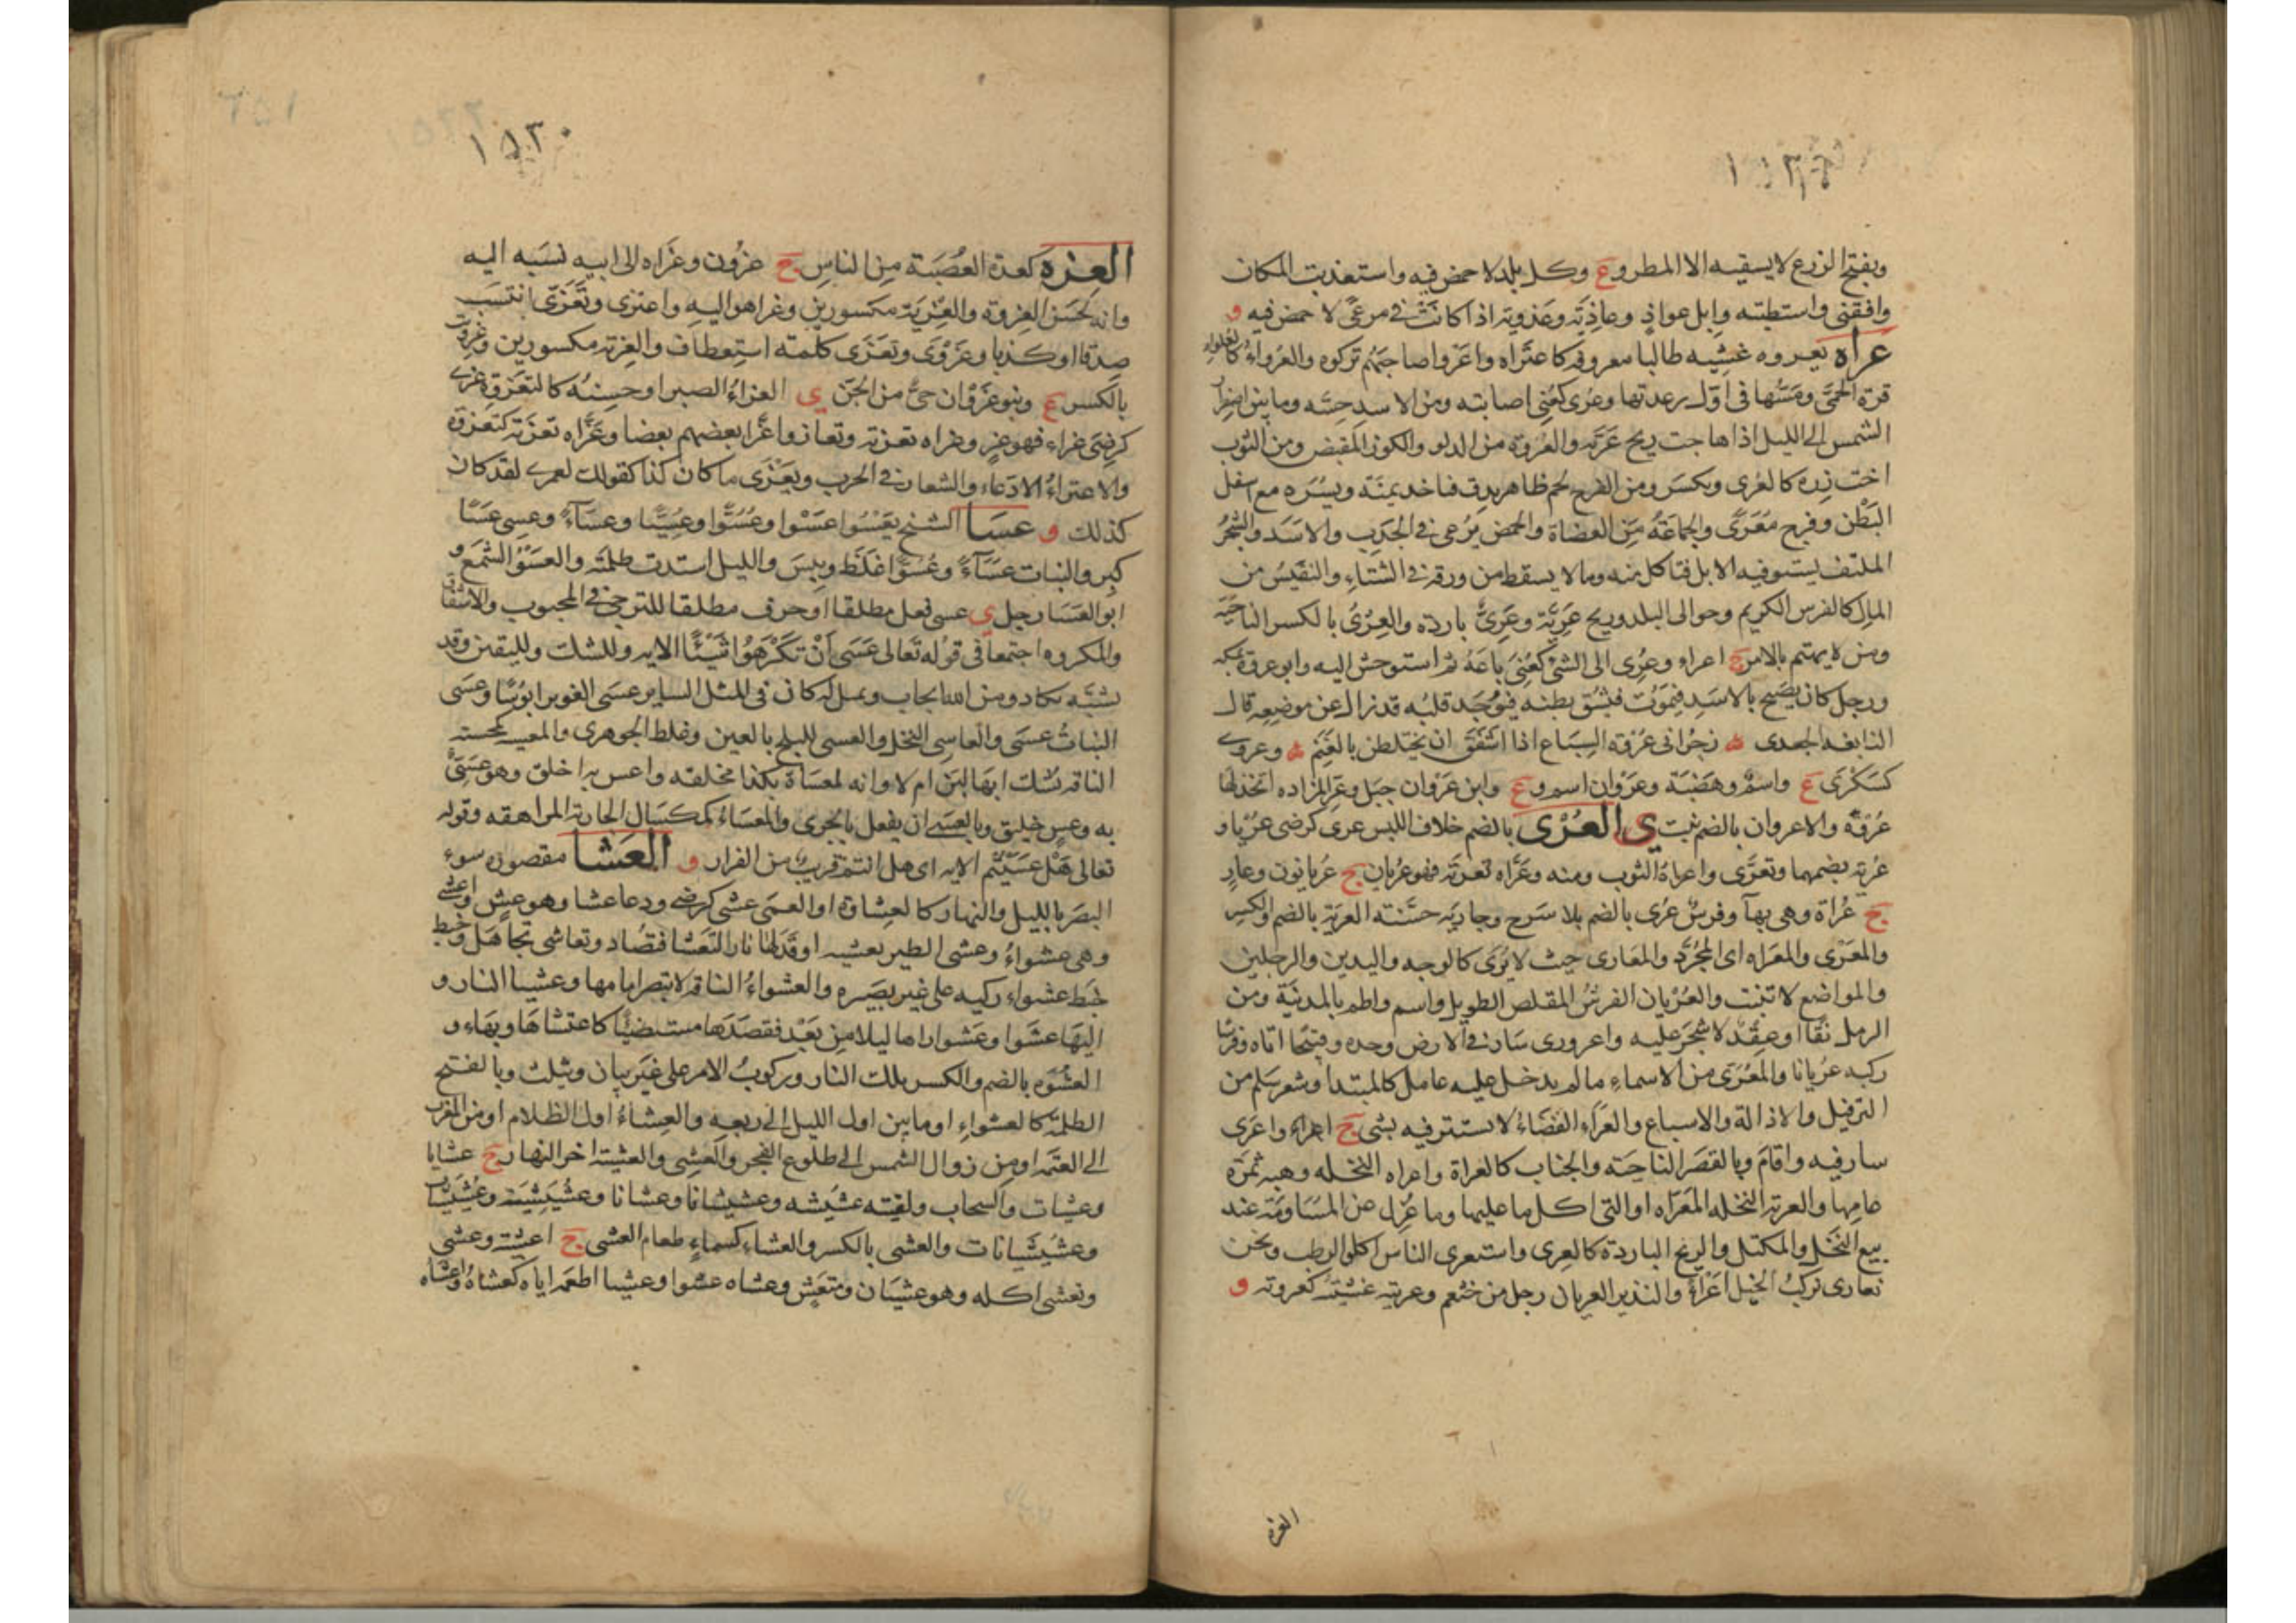 ١٥٢٩
وبفتح الزرع لا يسقيه الا المطر و ع وكل بلد لا حمض فيه واستعذبت المكان
وافقنى واستطبته وابل عواذٍ وعاذِيَة وعَذويه اذا كانَتْ فى مرعًى لا حمض فيه و
عراه يعروه غشِيه طالبا معروفه كاعتَراه واعرَوا صاحبَهُم تركوه والعُرَواءُ كالغلواء
قرة الحمَّى ومَسُّها فى اوّل رعدتها وعُرى كعُنِى اصابته ومن الاسد حِسّه وما بين اصفرار
الشمس الى الليل اذا هاجت ريح عَرِيّه والعُروة من الدلو والكوز المَقبض ومن الثوب
اخت زره كالعُرى ويكسَر ومن الفرج لحم ظاهر يدق فياخد يمنَة ويسْرَة مع اسفل
البَطْن وفرج مُعَرًّى والجماعَةُ مِنَ العضاة والحمض يُرعى فى الجَدْبِ والاسَد والشجَرُ
الملتف يشتو فيه الابل فتاكل منه وما لا يسقط من ورقه فى الشتاءِ والنفيسُ من
المال كالفرس الكريم وحوالى البلد وريح عَرِيّة وعَرِىٌّ باردة والعِرْىُ بالكسر الناحيَة
ومن لا يهتم بالامر ج اعراء وعُرِى الى الشئ كعُنِىَ باعَهُ ثم استوحش اليه وابو عروة بمكه
ورجل كان يصَيح بالاسَدِ فيَمَوت فيُشَق بطنه فيُوجَد قلبُه قد زال عن موضعِه قال
النابغه الجعدى زجْرَ ابى عُرْوَة السِبَاع اذا اشفَقَ ان يختلطن بالغَنَم وعروى
كسَكْرَى ع واسمٌ وهَضْبَة وعَرْوان اسم و ع وابن عَرْوان جبَل وعَرّ المزاده اتخذ لها
عُرْوَةً والاعروان بالضم نبت ى العُرْى بالضم خلاف اللبس عرى كرضى عُرْيا و
عُرية بضمهما وتعرَّى واعراهُ الثوب ومنه وعَرَّاه تعريَة فهو عُريان ج عُريانون وعارٍ
ج عُراة وهى بهآ وفرسٌ عُرى بالضم بلا سَرج وجارية حسَنته العريَة بالضم والكسر
والمعَرّى والمعَراه اى المجرَّد والمعَارى حيث لا يُرَى كالوجه واليدين والرجلين
والمواضع لا تنبت والعُرْيان الفرسُ المقلص الطويل واسم واطم بالمدينَة ومن
الرمل نقًا او عِقْد لا شجَر عليه واعرورى سَارَ فى الارض وحده وقبيحًا اتاه وفرسًا
ركبه عُريانا والمُعَرَّى من الاسماءِ ما لم يدخل عليه عامل كالمبتدأ وشعر سَلم من
الترفيل والاذالة والاسباغ والعَرَاءِ الفَضَاءُ لا يستتر فيه بشى ج اعراء واعرَى
سار فيه واقامَ وبالقصَر الناحيَة والجناب كالعراة واعراه النخله وهبه ثمرَة
عامِها والعرية النخله المعَرّاه او التى اكل ما عليها وما عُزِل عن المسَاومَة عند
بيع النخَل والمكتل والريح الباردة كالعرِى واستعرى الناس اكلوا الرطب ونحن
نعارى نركبُ الخيل اعْرَاءً والنذير العريان رجل من خثعم وعريته غشيتُه كعروته و
العزه
١٥٣٠
العِزه كعدة العُصبَة مِن الناسِ ج عزون وعَزَاه الى ابيه نَسَبه اليه
وانه لحَسَن العِزوة والعِزْيَة مكسورين وعزا هو اليه واعتزى وتَعَزَّى انتسَب
صِدقا او كذبا وعَزْوَى وتَعَزَى كلمة استِعطاف والعِزية مكسورين وعزويت
بالكسر ع وبنو عَزْوان حىٌّ من الجنّ ى العزاءُ الصبر او حسنُه كالتعْزوة عزى
كرضِىَ عزاء فهو عزٍ وعزاه تعزية وتعازوا عَزَّا بعضهم بعضا وعَزَّاه تعزيَة كتعزوة
والاعتزاءُ الادّعاء والشعار فى الحرب ويَعْزَى ما كان كذا كقولك لعمرى لقد كان
كذلك و عسَا الشيخ يَعْسُوا عسْوا وعُسُوًّا وعُسِيًّا وعسَآءً وعسِى عسًا
كبِر والنبات عسَآءً وعُسُوًّا غلَظ ويبِسَ والليل اشتدت ظلمته والعَسْوُ الشمَع و
ابو العَسَا رجل ى عسى فعل مطلقا او حرف مطلقا للترجى فى المحبوب والاشفاق
والمكروه اجتمعا فى قوله تعالى عَسَى أنْ تكْرَهُوا شَيْئًا الايه وللشك ولليقين وقد
يشَبَّه بكاد ومن الله ايجاب وبمنزلة كان فى المثل الساير عسَى الغوير ابؤسًا وعسَى
النباتُ عسَى والعاسِى النخل والعسى للبلح بالعين وغلط الجوهرى والمعسيه كمحسنه
الناقه يشك ابها لبَن ام لا وانه لمعسَاة بكذا مخلقه واعس به اخلق وهو عسِىٌّ
به وعسٍ خليق وبالعسَى ان يفعل بالحَرى والمعسَاءُ كمكسَال الجارية المراهقه وقوله
تعالى هَلْ عسَيْتُم الايه اى هل انتم قريبٌ من الفرار و العَشَا مقصورة سوء
البصَر بالليل والنهار كالعشاوة او العمَى عشى كرضى ودعا عشا وهو عشٍ واعشى
وهى عشواءُ وعشى الطير تعشيه اوقَد لها نارا لتعشا فتصاد وتعاشى تجاهَل وخبط
خبَط عشواء ركبه على غير بصَيره والعشواءُ الناقه لا تبصر امامها وعشيا النار و
اليَها عشْوا وعُشوا راها ليلا مِن بَعْد فقصَدَها مستضيئًا كاعتشاها وبها و
العشوة بالضم والكسر تلك النار وركوبُ الامر على غير بيان ويثلث وبالفتح
الظلمَة كالعشواءِ او ما بين اول الليل الى ربعه والعِشاءُ اول الظلام او من المغرب
الى العتَمه او مِن زوال الشمس الى طلوع الفجر والعَشِى والعشية اخر النهار ج عشايا
وعشيات والسحاب ولقيته عشيشه وعشيشانا وعشانا وعشَيشِيَة وعشيشيات
وعشَيشَيانات والعشى بالكسر والعشاء كسماءٍ طعام العشى ج اعشية وعشى
وتعشى اكله وهو عشيَان ومتعَشٍ وعشاه عشوا وعشيا اطعَمه اياه كعشاهُ واعشاه